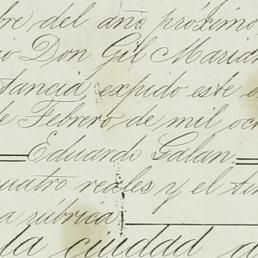 bre del año próximo
io Don Gil Marian
tancia, expido este e
de Febrero de mil och
Eduardo Galan.
cuatro reales y el tim
a rúbrica
la ciudad d